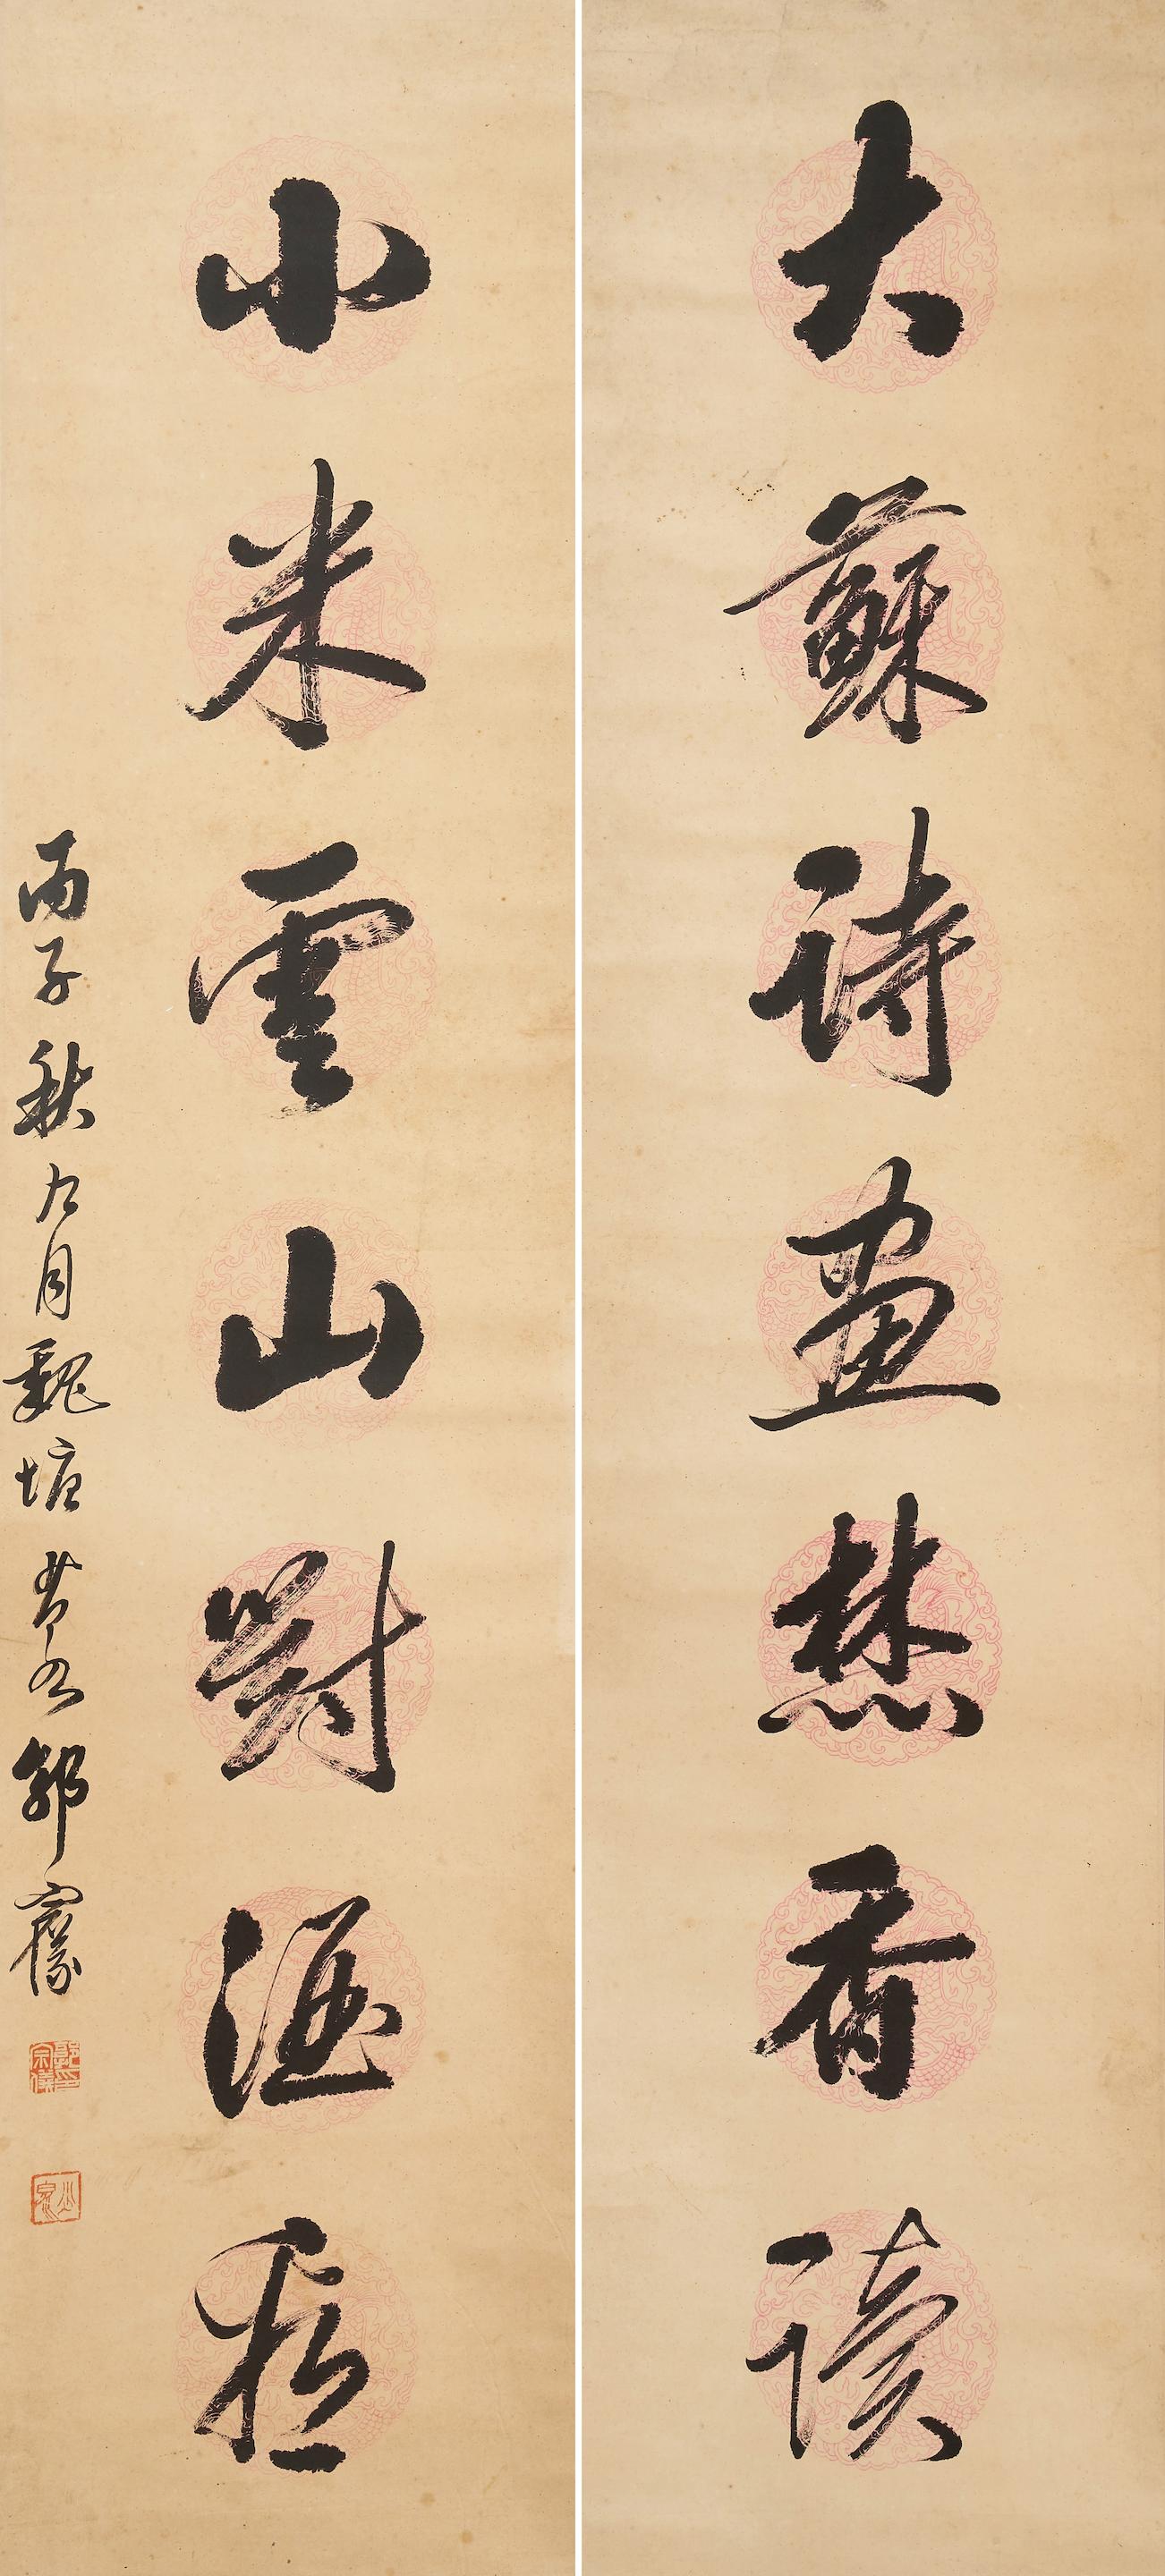 大蘇詩畫焚香讀
小米雲山對酒看
丙子秋九月魏塘
郭印宗儀